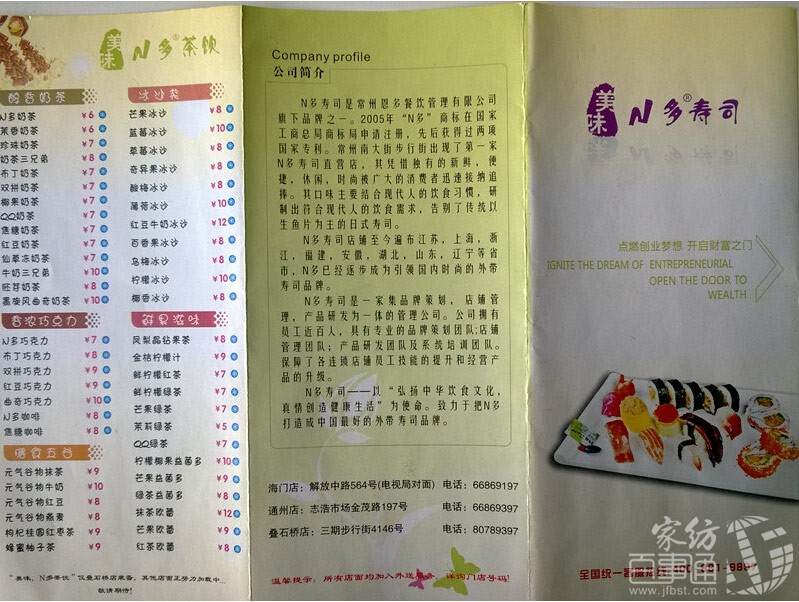 美味 N多®茶饮
醇香奶茶
N多奶茶 ¥6
茉香奶茶 ¥6
珍珠奶茶 ¥7
奶茶三兄弟 ¥8
布丁奶茶 ¥7
双拼奶茶 ¥7
椰果奶茶 ¥7
QQ奶茶 ¥7
焦糖奶茶 ¥7
红豆奶茶 ¥7
仙草冻奶茶 ¥7
牛奶三兄弟 ¥10
胚芽奶茶 ¥8
黑旋风曲奇奶茶 ¥10
香浓巧克力
N多巧克力 ¥7
布丁巧克力 ¥8
双拼巧克力 ¥9
红豆巧克力 ¥9
曲奇巧克力 ¥8
N多咖啡 ¥8
焦糖咖啡 ¥8
膳食五谷
元气谷物抹茶 ¥9
元气谷物牛奶 ¥10
元气谷物红豆 ¥8
元气谷物燕麦 ¥8
枸杞桂圆红枣茶 ¥9
蜂蜜柚子茶 ¥9
冰沙类
芒果冰沙 ¥8
蓝莓冰沙 ¥10
草莓冰沙 ¥8
奇异果冰沙 ¥8
酸梅冰沙 ¥8
薄荷冰沙 ¥10
红豆牛奶冰沙 ¥12
百香果冰沙 ¥8
乌梅冰沙 ¥8
柠檬冰沙 ¥10
椰香冰沙 ¥8
鲜果滋味
凤梨晶钻果茶 ¥8
金桔柠檬汁 ¥9
鲜柠檬红茶 ¥7
鲜柠檬绿茶 ¥7
芒果绿茶 ¥7
茉莉绿茶 ¥5
QQ绿茶 ¥7
柠檬椰果益菌多 ¥10
芒果益菌多 ¥9
绿茶益菌多 ¥8
抹茶欧蕾 ¥12
芒果欧蕾 ¥9
红茶欧蕾 ¥8
"美味，N多茶饮"仅叠石桥店兼备，其他店面正努力加载中...
敬请期待!
Company profile
公司简介
N多寿司是常州恩多餐饮管理有限公司
旗下品牌之一。2005年"N多"商标在国家
工商总局商标局申请注册，先后获得过两项
国家专利。常州南大街步行街出现了第一家
N多寿司直营店，其凭借独有的新鲜，便
捷，休闲，时尚被广大的消费者迅速接纳追
捧。其口味主要结合现代人的饮食习惯，研
制出符合现代人的饮食需求，告别了传统以
生鱼片为主的日式寿司。
N多寿司店铺至今遍布江苏，上海，浙
江，福建，安徽，湖北，山东，辽宁等省
市，N多已经逐步成为引领国内时尚的外带
寿司品牌。
N多寿司是一家集品牌策划，店铺管
理，产品研发为一体的管理公司。公司拥有
员工近百人，具有专业的品牌策划团队;店铺
管理团队；产品研发团队及系统培训团队。
保障了各连锁店铺员工技能的提升和经营产
品的升级。
N多寿司——以"弘扬中华饮食文化，
真情创造健康生活"为使命。致力于把N多
打造成中国最好的外带寿司品牌。
海门店：解放中路564号(电视局对面) 电话：66869197
通州店：志浩市场金茂路197号 电话：66869397
叠石桥店：三期步行街4146号 电话：80789397
温馨提示：所有店面均加入外送服务，详询门店号码!
美味 N多®寿司
点燃创业梦想 开启财富之门
IGNITE THE DREAM OF ENTREPRENEURIAL
OPEN THE DOOR TO
WEALTH
全国统一客服热线
家纺
百事通
www.jfbst.com